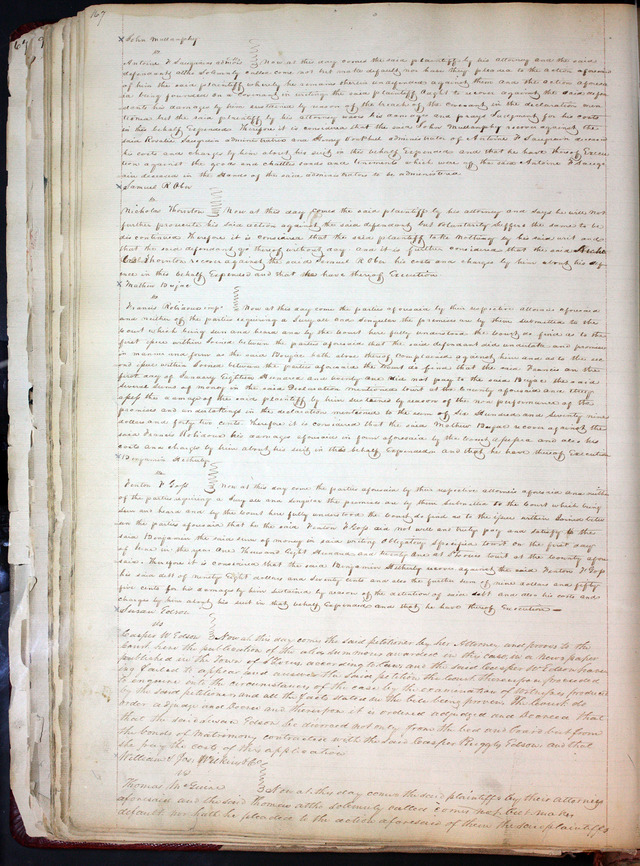 167
John Mullanphy
vs
Antoine F Saugrains admrs Now at this day comes the said plaintiff by his attorney and the said
defendants altho solemnly called come not but make default nor have they plead to the action aforesaid
of him the said plaintiff whereby he remains therein undefended against them And the action aforesaid
being founded on a Covenant in writing the said plaintiff ought to recover against the said defen
dants his damages by him sustained by reason of the breach of the Covenant in the declaration men
tioned but the said plaintiff by his attorney and prays Judgment for his costs
in this behalf Expended Therefore it is considered that the said John Mullanphy recover against the
said Rosalie Saugrain administratrix and Henry administrator of Antoine F Saugrain deceased
his costs and charges by him about his suit in this behalf Expended and that he have thereof Execu
tion against the goods and chattles lands and tenements which were of the said Antoine F Saugr
ain deceased in the Hands of the said administrators to be administered
Samuel R Ober
vs
Nicholas Thornton Now at this day comes the said plaintiff by his attorney and says he will not
further prosecute his said action against the said defendant but voluntarily suffers the same to be
discontinued Therefore it is considered that the said plaintiff take nothing by his said writ and
that the said defendant go thereof without day And it is further considered that the said
Thornton recover against the said Samuel R Ober his costs and charges by him about his def
ence in this behalf Expended and that he have thereof Execution
Mathew
vs
Francis Now at this day come the parties aforesaid by their respective attornies aforesaid
and neither of the parties requiring a Jury all and singular the premises are by them submitted to the
Court which being seen and heard and by the Court here fully understood the Court do find as to the
first issue within Joined between the parties aforesaid that the said defendant did undertake and promise
in manner and form as the said hath above thereof Complained against him and as to the sec
ond issue within Joined between the parties aforesaid the Court do find that the said Francis on the
first day of January Eighteen Hundred and twenty one did not pay to the said the said
several sums of money in the said Declaration mentioned at the County aforesaid and they
assess the damages of the said plaintiff by him sustained by reason of the non performance of the
promises and undertakings in the declaration mentioned to the sum of Six Hundred and Seventy nine
dollars and forty two cents Therefore it is considered that the said Mathew recover against the
said Francis his damages aforesaid in form aforesaid by the Court assessed and also his
costs and charges by him about his suit in this behalf Expended and that he have thereof Execution
Benjamin
vs
Fenton F Goss Now at this day come the parties aforesaid by their respective attornies aforesaid and neither
of the parties requiring a Jury all and singular the premises are by them Submitted to the Court which being
seen and heard and by the Court here fully understood the Court do find as to the issue within Joined betwe
en the parties aforesaid that he the said Fenton F Goss did not well and truly pay and satisfy to the
said Benjamin the said sum of money in said writing obligatory specified on the first day
of in the year One Thousand Eight Hundred and twenty at St Louis at the County afore
said Therefore it is considered that the said Benjamin recover against the said Fenton F Goss
his said debt of ninety Eight dollars and Seventy cents and also the further sum of nine dollars and fifty
five cents for his damages by him sustained by reason of the detention of said debt and also his costs and
charges by him about his suit in that behalf Expended and that he have thereof Execution
Susan Edson
vs
Casper W Edson Now at this day comes the said petitioner by her Attorney and proves to the
Court here the publication of the alias summons awarded in this case in a Newspaper
published in the Town of St Louis according to Law and the said Casper W Edson having
failed to appear and answer the said petition the Court thereupon proceeded
to inquire into the circumstances of the case by the examination of witnesses produced
by the said petitioner and all the facts stated in the bill being proven the Court do
order adjudge and decree and thereupon it is ordered adjudged and decreed that
that the said Susan Edson be divorced not only from the bed and board but from
the bonds of Matrimony contracted with the said Casper Edson and that
she pay the costs of this application
William & Jos Wilkins & Co
vs
Thomas McGuire Now at this day comes the said plaintiffs by their Attorney
aforesaid and the said Thomas altho solemnly called comes not but makes
default nor hath he pleaded to the action aforesaid of them the said plaintiffs